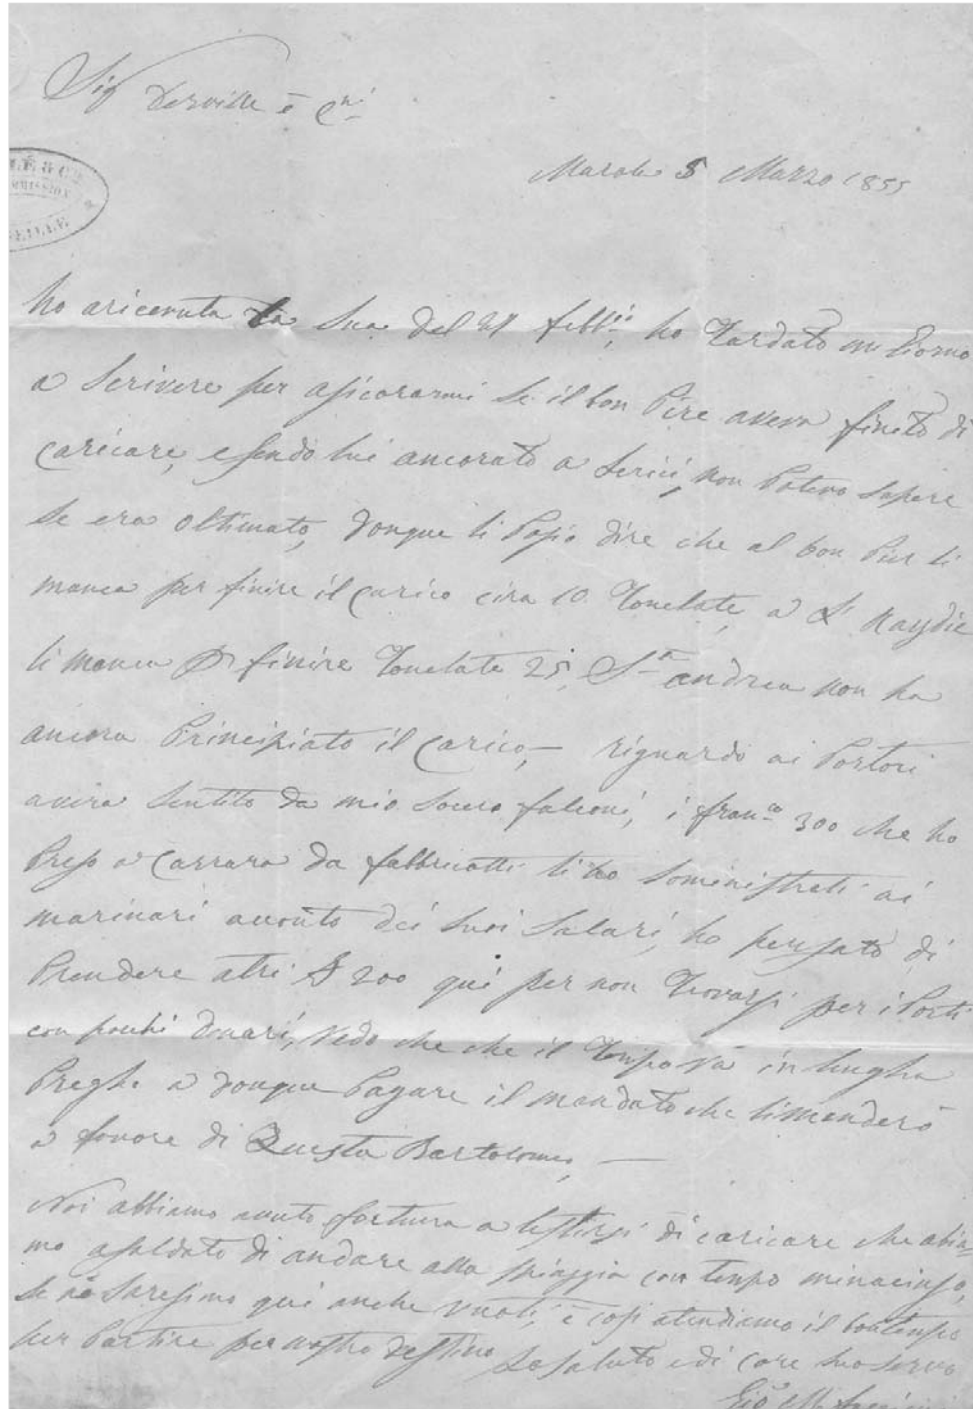 Sig Derville e C.ni
LÉ & C
MMISSION
EILLE
5 Marzo 1855
ho aricevuta la Sua del 27 febb.io, ho Tardato un Giorno
a Scrivere per asicorarmi Se il bon Pire aveva finito di
Caricare, esendo lui ancorato a Lerici, non Potevo Sapere
Se era Oltimato, donque li Poso dire che al bon Pier li
manca per finire il Carico cira 10 Tonelate, a L' Haydie
li manca P finire Tonelate 25, S.n andrea non ha
ancora Principiato il Carico, — riguardo ai Portori
avira Sentito da mio Socero falconi, i fran.co 300 che ho
Preso a Carrara da fabbricotti li ho Soministrati ai
marinari aconto dei Suoi Salari, ho pensato di
Prendere altri 200 qui per non Trovarsi per i Porti
con pochi denari, Vedo che che il Tempo Va in lungha
Pregho a donque Pagare il mandato che li manderò
a favore di Questa Bartolomeo, —
Noi abbiamo avuto fortuna a lestirsi di caricare che abia-
mo asaldato di andare alla spiaggia con tempo minacioso,
Se nò Saresimo qui anche Vuoti, è cosi atendiamo il bontempo
per Partire per nostro destino Lo saluto e di core Suo Servo
Gio M.